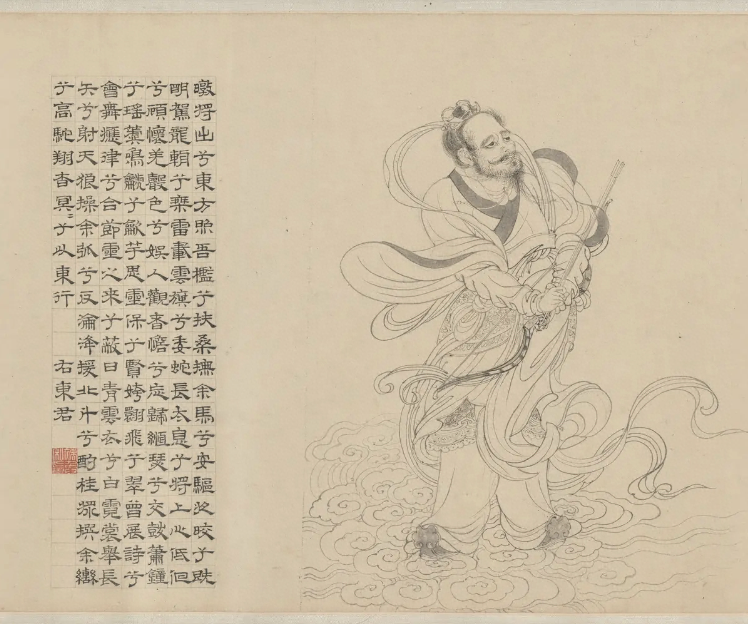 暾將出兮東方照吾檻兮扶桑撫余馬兮安驅夜皎兮既
明駕龍輈兮乘雷載雲旗兮委蛇長太息兮將上心低佪
兮顧懷羌聲色兮娛人觀者憺兮忘歸緪瑟兮交鼓蕭鐘
兮瑤簴鳴鷈兮龡竽思靈保兮賢姱翾飛兮翠曾展詩兮
會舞應律兮合節靈之來兮蔽日青雲衣兮白霓裳舉長
矢兮射天狼操余弧兮反淪降援北斗兮酌桂漿撰余轡
兮高駝翔杳冥〻兮以東行 右東君